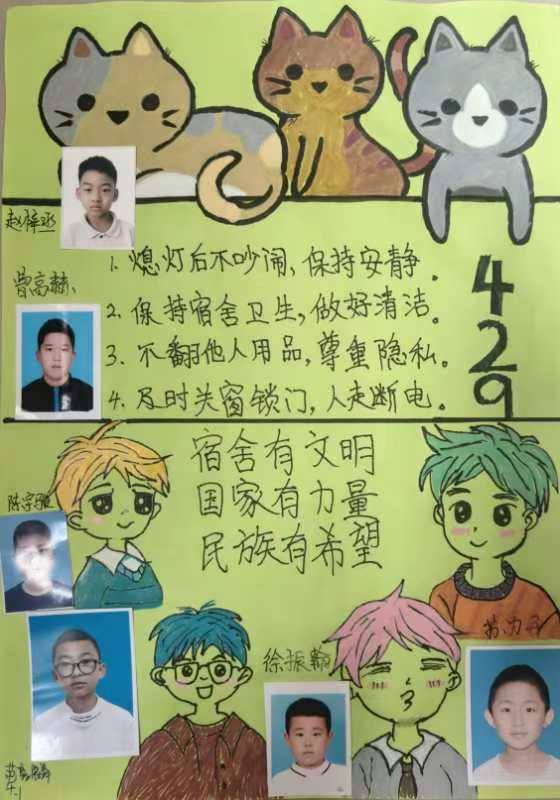 赵梓丞
曾高赫
1. 熄灯后不吵闹、保持安静。
2. 保持宿舍卫生，做好清洁。
3. 不翻他人用品，尊重隐私。
4. 及时关窗锁门，人走断电。
429
宿舍有文明
国家有力量
民族有希望
徐振翰